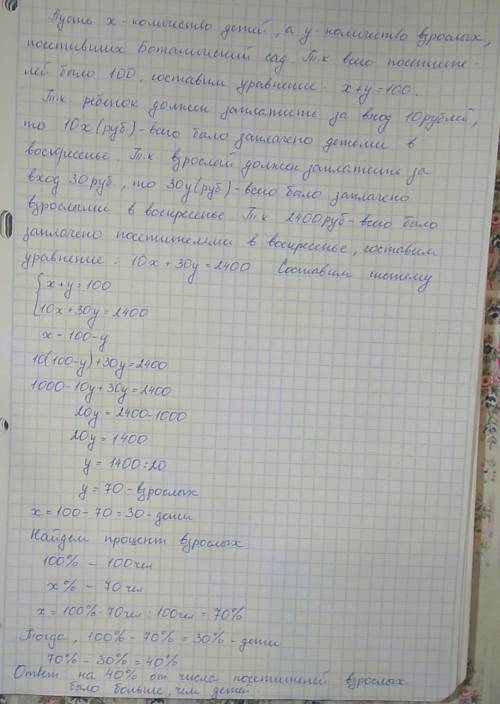 Пусть х - количество детей, а у - количество взрослых,
посетивших Ботанический сад. Т.к всего посетите-
лей было 100, составим уравнение: x+y=100.
Т.к ребёнок должен заплатить за вход 10 рублей,
то 10х (руб) - всего было заплачено детьми в
воскресенье. Т.к взрослый должен заплатить за
вход 30 руб., то 30у (руб) - всего было заплачено
взрослыми в воскресенье. Т.к 2400 руб - всего было
заплачено посетителями в воскресенье, составим
уравнение: 10x + 30y = 2400 Составим систему
{x+y=100
10x+30y=2400
x = 100-y
10(100-y)+30y=2400
1000-10y+30y=2400
20y = 2400-1000
20y = 1400
y = 1400:20
y = 70 - взрослых
x = 100-70 = 30 - дети
Найдём процент взрослых
100% - 100 чел
x% - 70 чел
x = 100%·70чел : 100чел = 70%
Тогда, 100% - 70% = 30% - дети
70% - 30% = 40%
Ответ на 40% от числа посетителей взрослых
было больше, чем детей